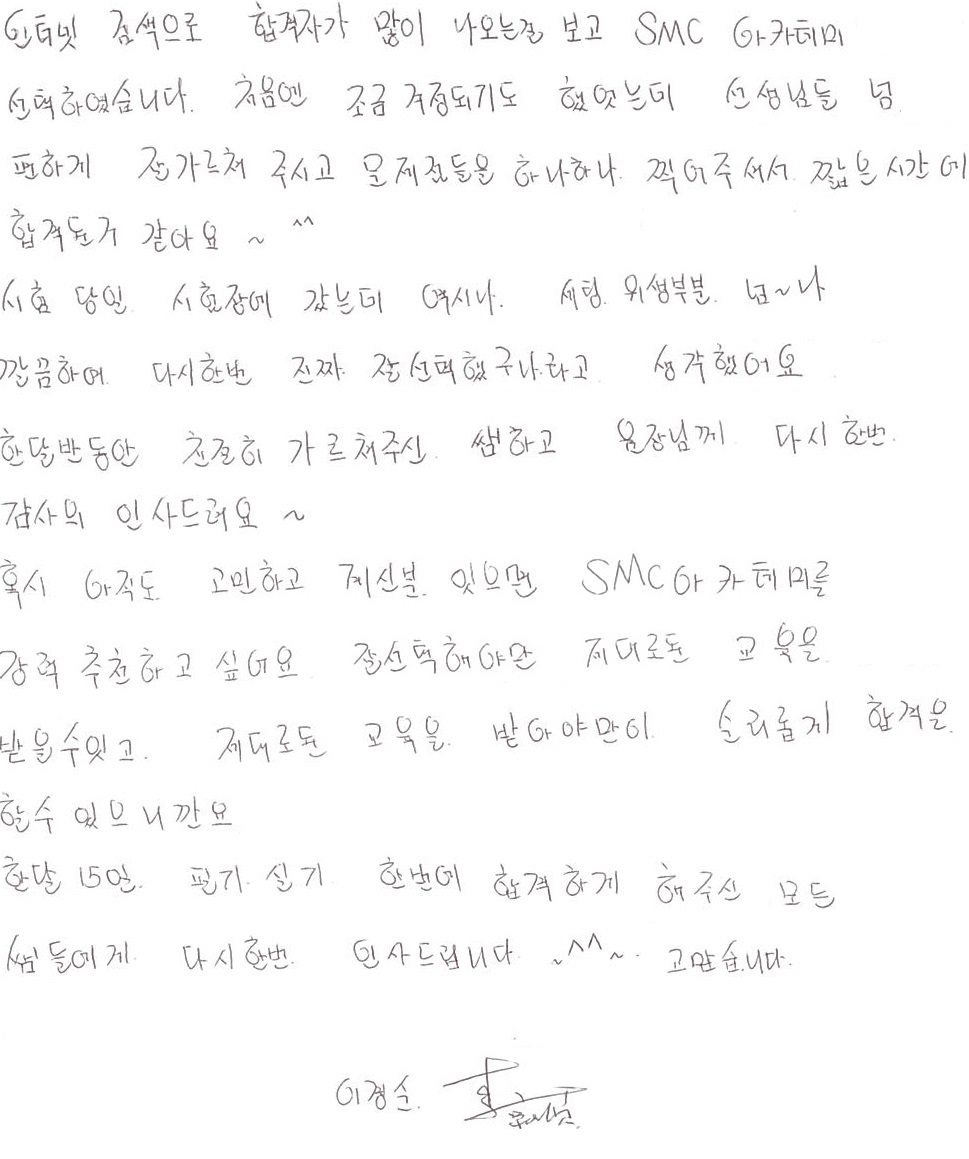 인터넷 검색으로 합격자가 많이 나오는걸 보고 SMC 아카테미
선택하였습니다. 처음엔 조금 걱정되기도 했엇는데 선생님들 넘
편하게 잘가르쳐 주시고 문제점들을 하나하나 찍어주셔서 짧은시간에
합격된거 같아요 ~ ^^
시험 당일 시험장에 갔는데 역시나. 세팅. 위생부분. 너~나
깔끔하여 다시한번 진짜 잘선택했구나.하고 생각했어요
한달반동안 친절히 가르쳐주신 쌤하고 원장님께 다시한번.
감사의 인사드려요 ~
혹시 아직도 고민하고 계신분 있으면 SMC아카테미를
강력 추천하고 싶어요 잘선택해야만 제대로된 교육을
받을수있고. 제대로된 교육을 받아야만이 순리롭게 합격은
할수 있으니깐요
한달 15일. 필기.실기 한번에 합격하게 해주신 모든
쌤들에게 다시한번 인사드립니다 ~^^~. 고맙습니다.
이경순.